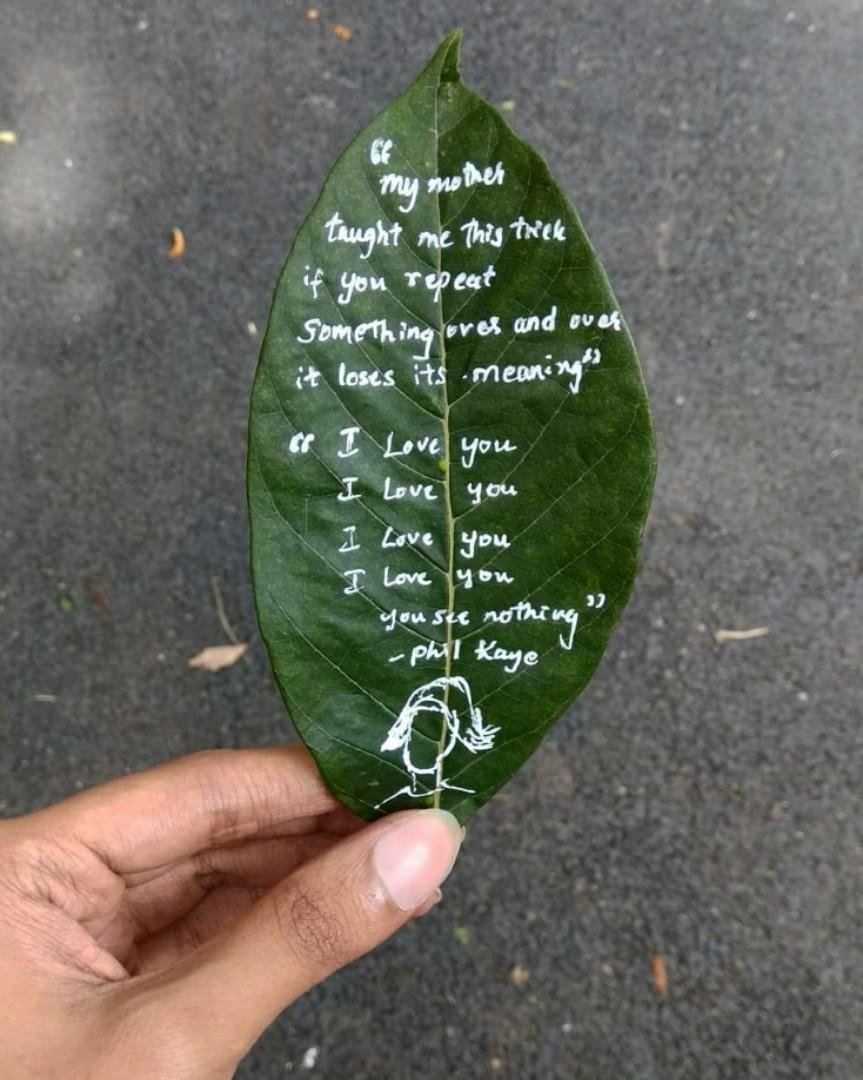 “
my mother
taught me this trick
if you repeat
Something over and over
it loses its meaning”
“ I Love you
I Love you
I Love you
I Love you
you see nothing”
- phil Kaye